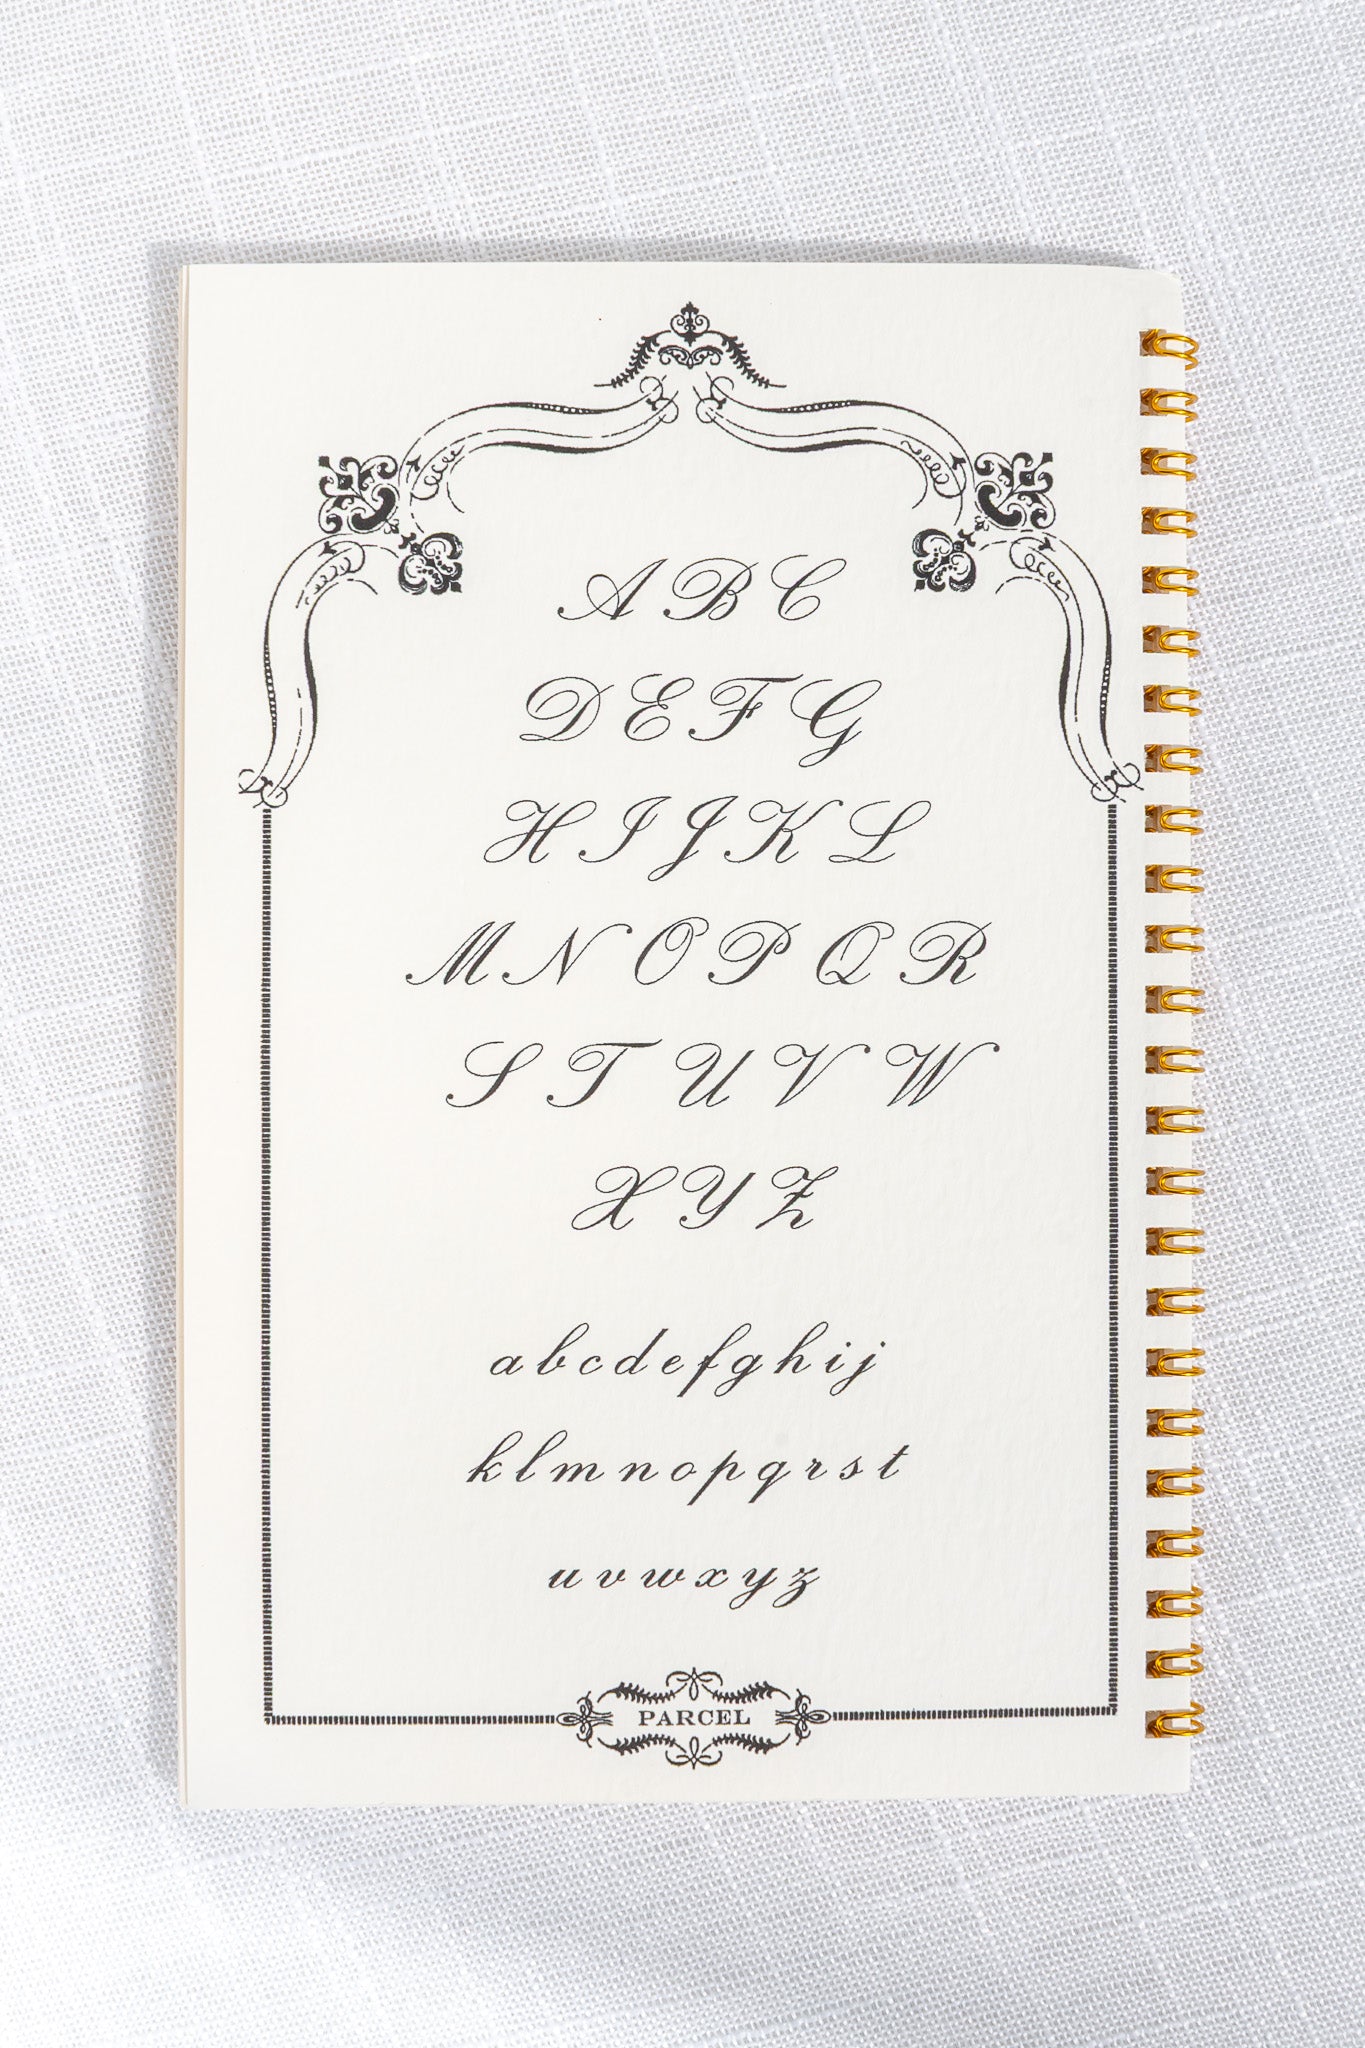 A B C
D E F G
H I J K L
M N O P Q R
S T U V W
X Y Z
a b c d e f g h i j
k l m n o p q r s t
u v w x y z
PARCEL